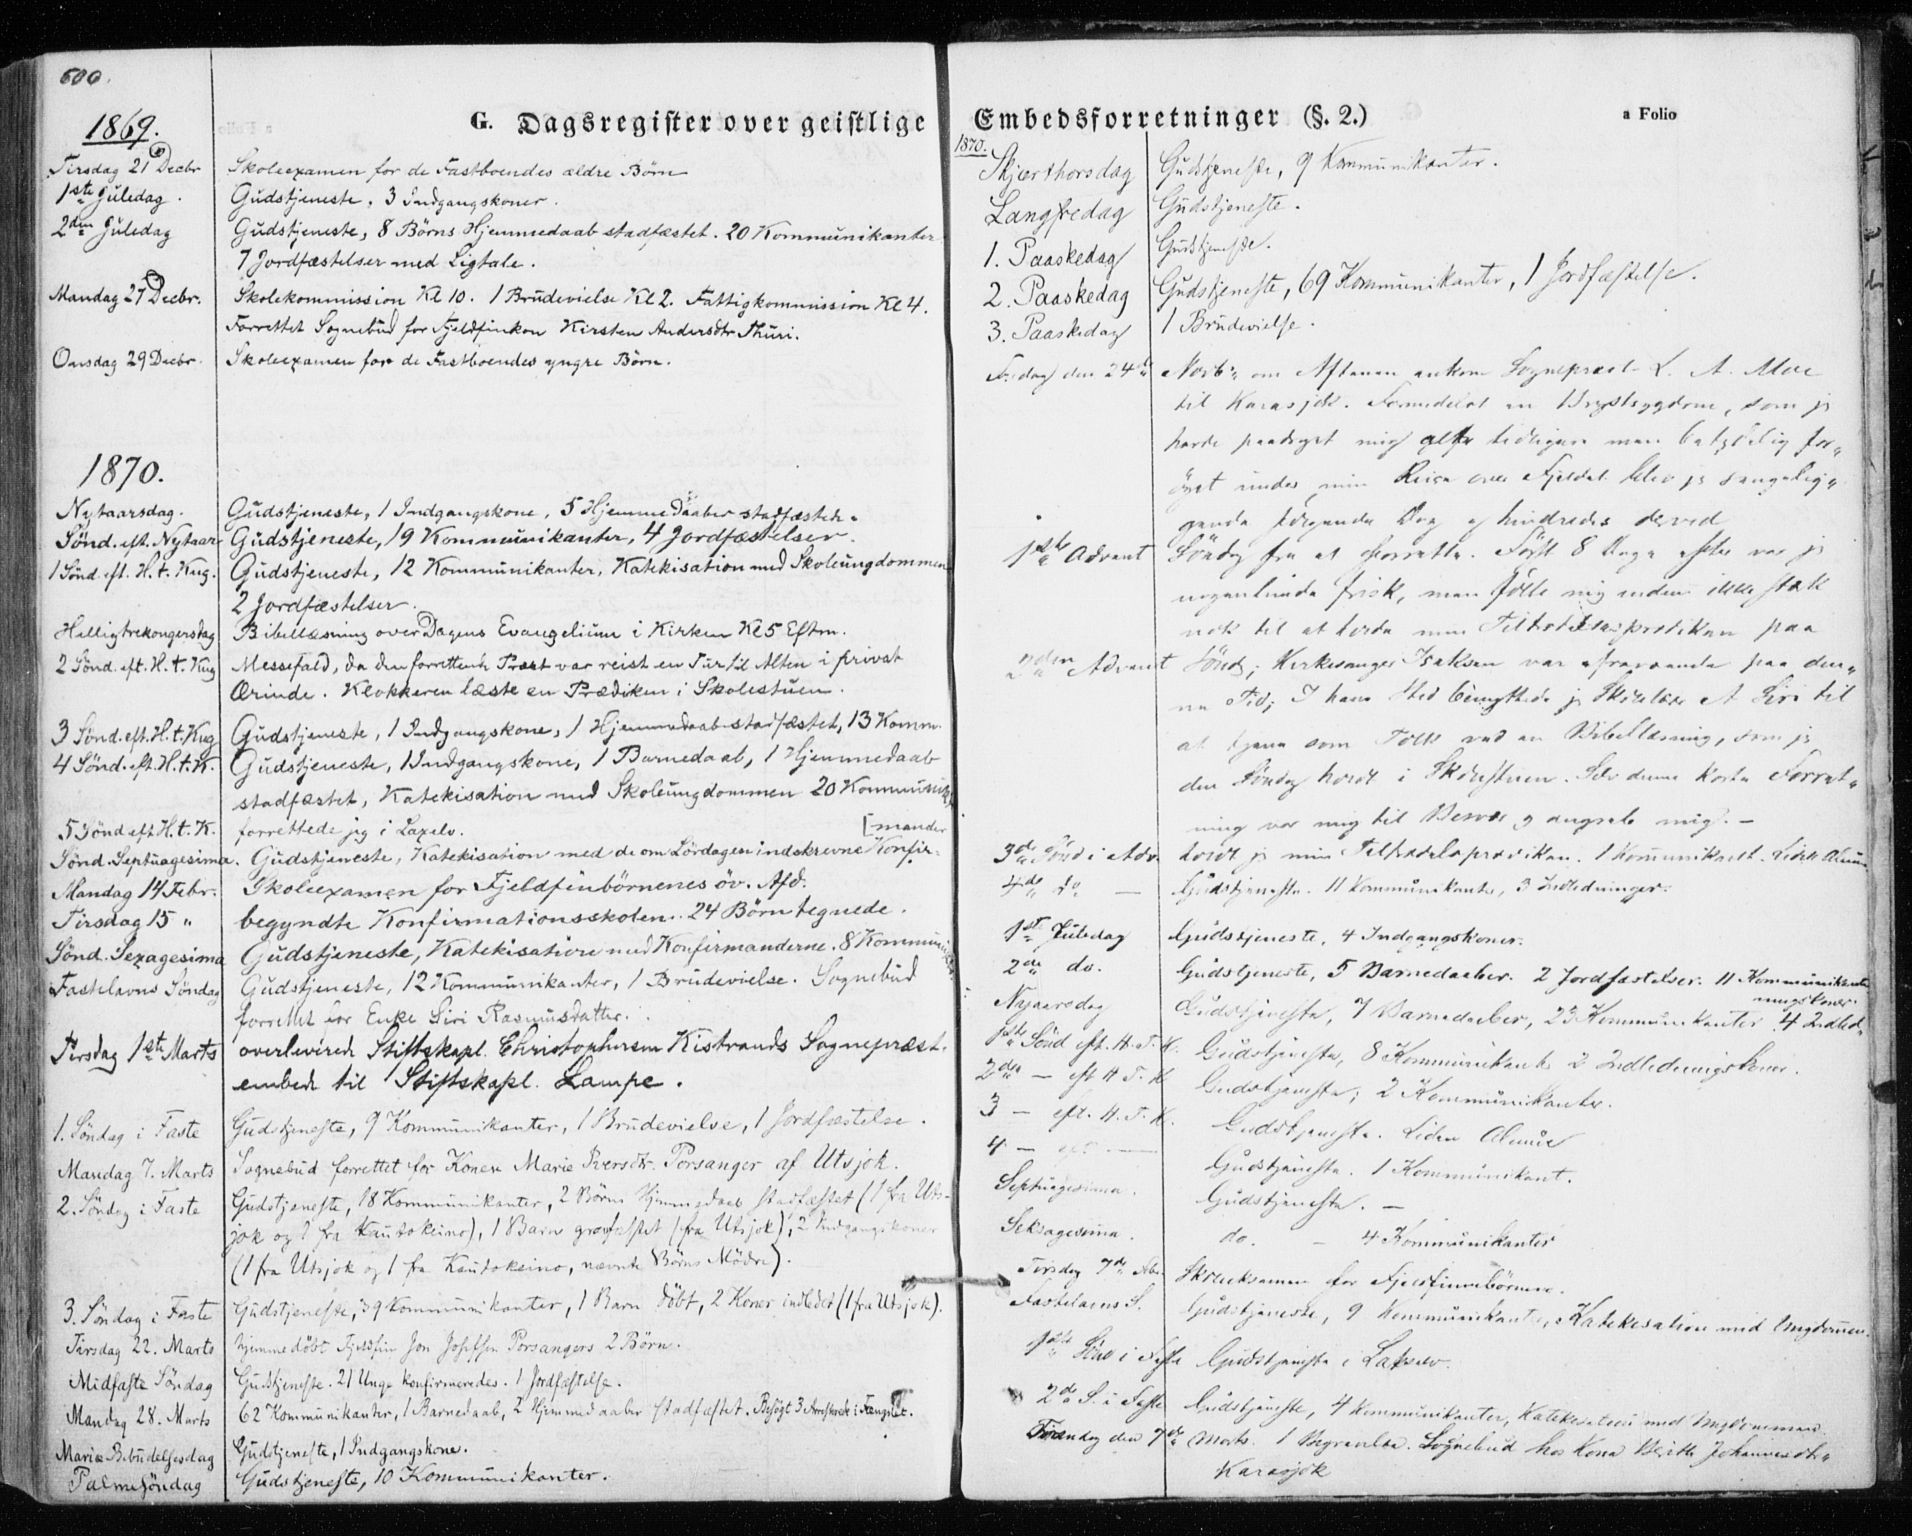 600.
G. Dagsregister over geistlige
1869.
Tirsdag 21 Decbr Skoleexamen for de Fastboendes ældre Börn
1ste Juledag. Gudstjeneste. 3 Indgangskoner.
2den Juledag Gudstjeneste, 8 Börns Hjemmedaab stadfæstet. 20 Kommunikanter
7 Jordfæstelser med Ligtale.
Mandag 27 Decbr. Skolekommission Kl 10. 1 Brudevielse Kl 2. Fattigkommission Kl 4.
Forrettet Sognebud for Fjeldfinkon Kirsten Andersdtr Thuri.
Onsdag 29 Decbr. Skoleexamen for de Fastboendes yngre Börn.
1870.
Nytaarsdag. Gudstjeneste, 1 Indgangskone, 5 Hjemmedaaber stadfæstede.
Sönd. eft. Nytaar Gudstjeneste, 19 Kommunikanter, 4 Jordfæstelser.
1 Sönd. eft. H. t. Kug. Gudstjeneste, 12 Kommunikanter, Katekisation med Skoleungdommen
2 Jordfæstelser.
Helligtrekongersdag Bibellæsning over Dagens Evangelium i Kirken Kl 5 Eftm.
2 Sönd. eft. H. t. Kug Messefald, da den forrettende Præst var reist en Tur til Alten i privat
Ærinde. Klokkeren læste en Prædiken i Skolestuen.
3 Sönd. eft. H. t. Kug Gudstjeneste, 1 Indgangskone, 1 Hjemmedaab stadfæstet, 13 Komm.
4 Sönd. eft. H. t. K. Gudstjeneste, 1 Indgangskone, 1 Barnedaab, 1 Hjemmedaab
stadfæstet, Katekisation med Skoleungdommen 20 Kommunik
5 Sönd eft H. t. K. forrettede jeg i Laxelv. [mander
Sönd. Septuagesima. Gudstjeneste, Katekisation med de om Lördagen indskrevne Konfir-
Mandag 14 Febr. Skoleexamen for Fjeldfinbörnenes öv. Afd.
Tirsdag 15 " begyndte Konfirmationsskolen. 24 Börn tegnede.
Sönd. Sexagesima Gudstjeneste, Katekisation med Konfirmanderne. 8 Kommunik
Fastelavns Söndag Gudstjeneste, 12 Kommunikanter, 1 Brudevielse. Sognebud
forrettet for Enke Siri Rasmusdatter.
Tirsdag 1ste Marts overleverede Stiftskapl. Christophersen Kistrands Sognepræst-
embede til Stiftskapl. Lampe.
1. Söndag i Faste Gudstjeneste, 9 Kommunikanter, 1 Brudevielse, 1 Jordfæstelse.
Mandag 7. Marts Sognebud forrettet for Konen Marie Iversdtr. Porsanger af Utsjok.
2. Söndag i Faste Gudstjeneste, 18 Kommunikanter, 2 Börns Hjemmedaab stadfæstet (1 fra Uts-
jok og 1 fra Kautokeino), 1 Barn gravfæstet (fra Utsjok), 2 Indgangskoner
(1 fra Utsjok og 1 fra Kautokeino, nævnte Börns Mödre).
3. Söndag i Faste Gudstjeneste, 39 Kommunikanter, 1 Barn döbt, 2 Koner indledet (1 fra Utsjok).
Tirsdag 22. Marts hjemmedöbt Fjeldfin Jon Josefsen Porsangers 2 Börn.
Midfaste Söndag Gudstjeneste. 21 Unge konfirmeredes. 1 Jordfæstelse.
Mandag 28. Marts 62 Kommunikanter, 1 Barnedaab, 2 Hjemmedaaber stadfæstet. Besögt 3 Arresterede i Fængslet.
Mariæ Bebudelsesdag Gudstjeneste, 1 Indgangskone.
Palmesöndag Gudstjeneste, 10 Kommunikanter.
Embedsforretninger (§. 2.)
a Folio
1870.
Skjærthorsdag Gudstjeneste, 9 Kommunikanter.
Langfredag Gudstjeneste.
1. Paaskedag Gudstjeneste.
2. Paaskedag Gudstjeneste, 69 Kommunikanter, 1 Jordfæstelse.
3. Paaskedag 1 Brudevielse.
Fredag den 24de Novb. om Aftenen ankom Sognepræst L. A. Moe
til Karasjok. Formedelst en Brystsygdom, som jeg
havde paadraget mig tidligere men betydelig for-
öget under min Reise over Fjeldet blev jeg sengelig-
gende fölgende Dag og hindredes derved
1ste Advent Söndag fra at forrette. Först 8 Dage efter var jeg
nogenlunde frisk, men fölte mig endnu ikke stærk
nok til at holde min Tiltrædelsesprediken paa
2den Advent Sönd; Kirkesanger Isaksen var fraværende paa den-
ne Tid; I hans Sted benyttede jeg Skolelærer A Siri til
at tjene som Tolk ved en Bibellæsning, som jeg
den Söndag holdt i Skolestuen. Selv denne korte Forret-
ning var mig til Besvær og angreb mig. -
3de Sönd i Adv. holdt jeg min Tiltrædelsprædiken. 1 Kommunikant. Liden Almue
4de do - Gudstjeneste. 11 Kommunikanter, 3 Indledninger.
1ste Juledag Gudstjeneste, 4 Indgangskoner.
2de do. Gudstjeneste, 5 Barnedaaber. 2 Jordfæstelser. 11 Kommunikanter
ningskoner.
Nyaarsdag Gudstjeneste, 7 Barnedaaber, 23 Kommunikanter 4 Indled-
1ste Sönd eft. H. T. K. Gudstjeneste, 8 Kommunikant 2 Indledningskoner.
2de - eft H T. K Gudstjeneste; 2 Kommunikanter.
3 - eft. H. T. K. Gudstjeneste. Liden Almue
4 - eft - Gudstjeneste. 1 Kommunikant.
Septuagesima. Gudstjeneste. -
Seksagesima. do. - 4 Kommunikanter
Tirsdag 7de Feb. Skoleeksamen for Fjeldfinnebörnene.
Fastelavns S. Gudstjeneste, 9 Kommunikanter, Katekesation med Ungdommen.
1ste Sönd i Faste Gudstjeneste i Lakselv.
2de S. i Faste Gudstjeneste, 4 Kommunikanter, Katekesation med Ungdommen.
den 7de Marts. 1 Begravelse. Sognebud hos Kona Berith Johannesdtr
Karasjok